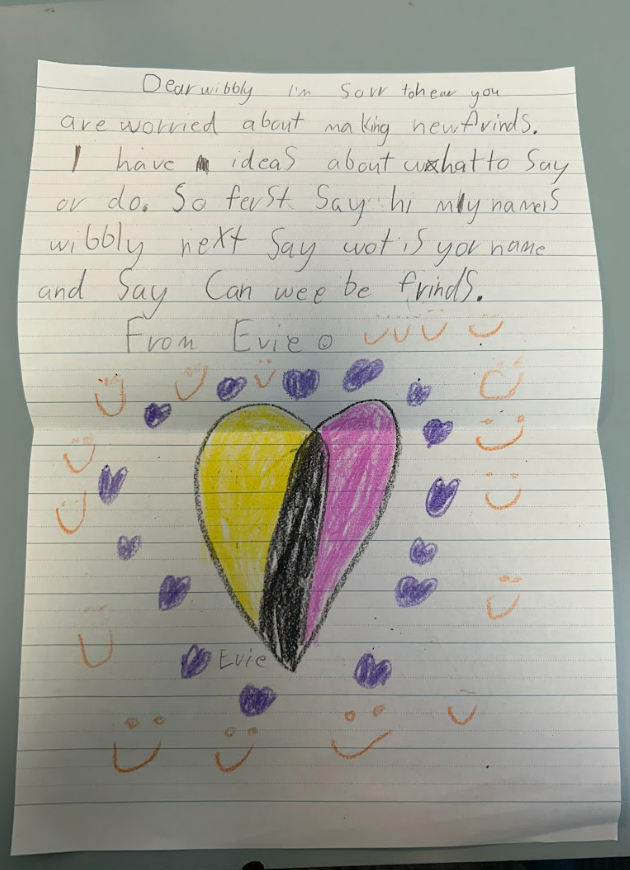 Dear wibbly I'm Sorr to hear you
are worried about making new frinds.
I have ideas about what to Say
or do. So ferst Say hi my name is
wibbly next Say wot is yor name
and Say Can wee be frinds.
From Evie
Evie